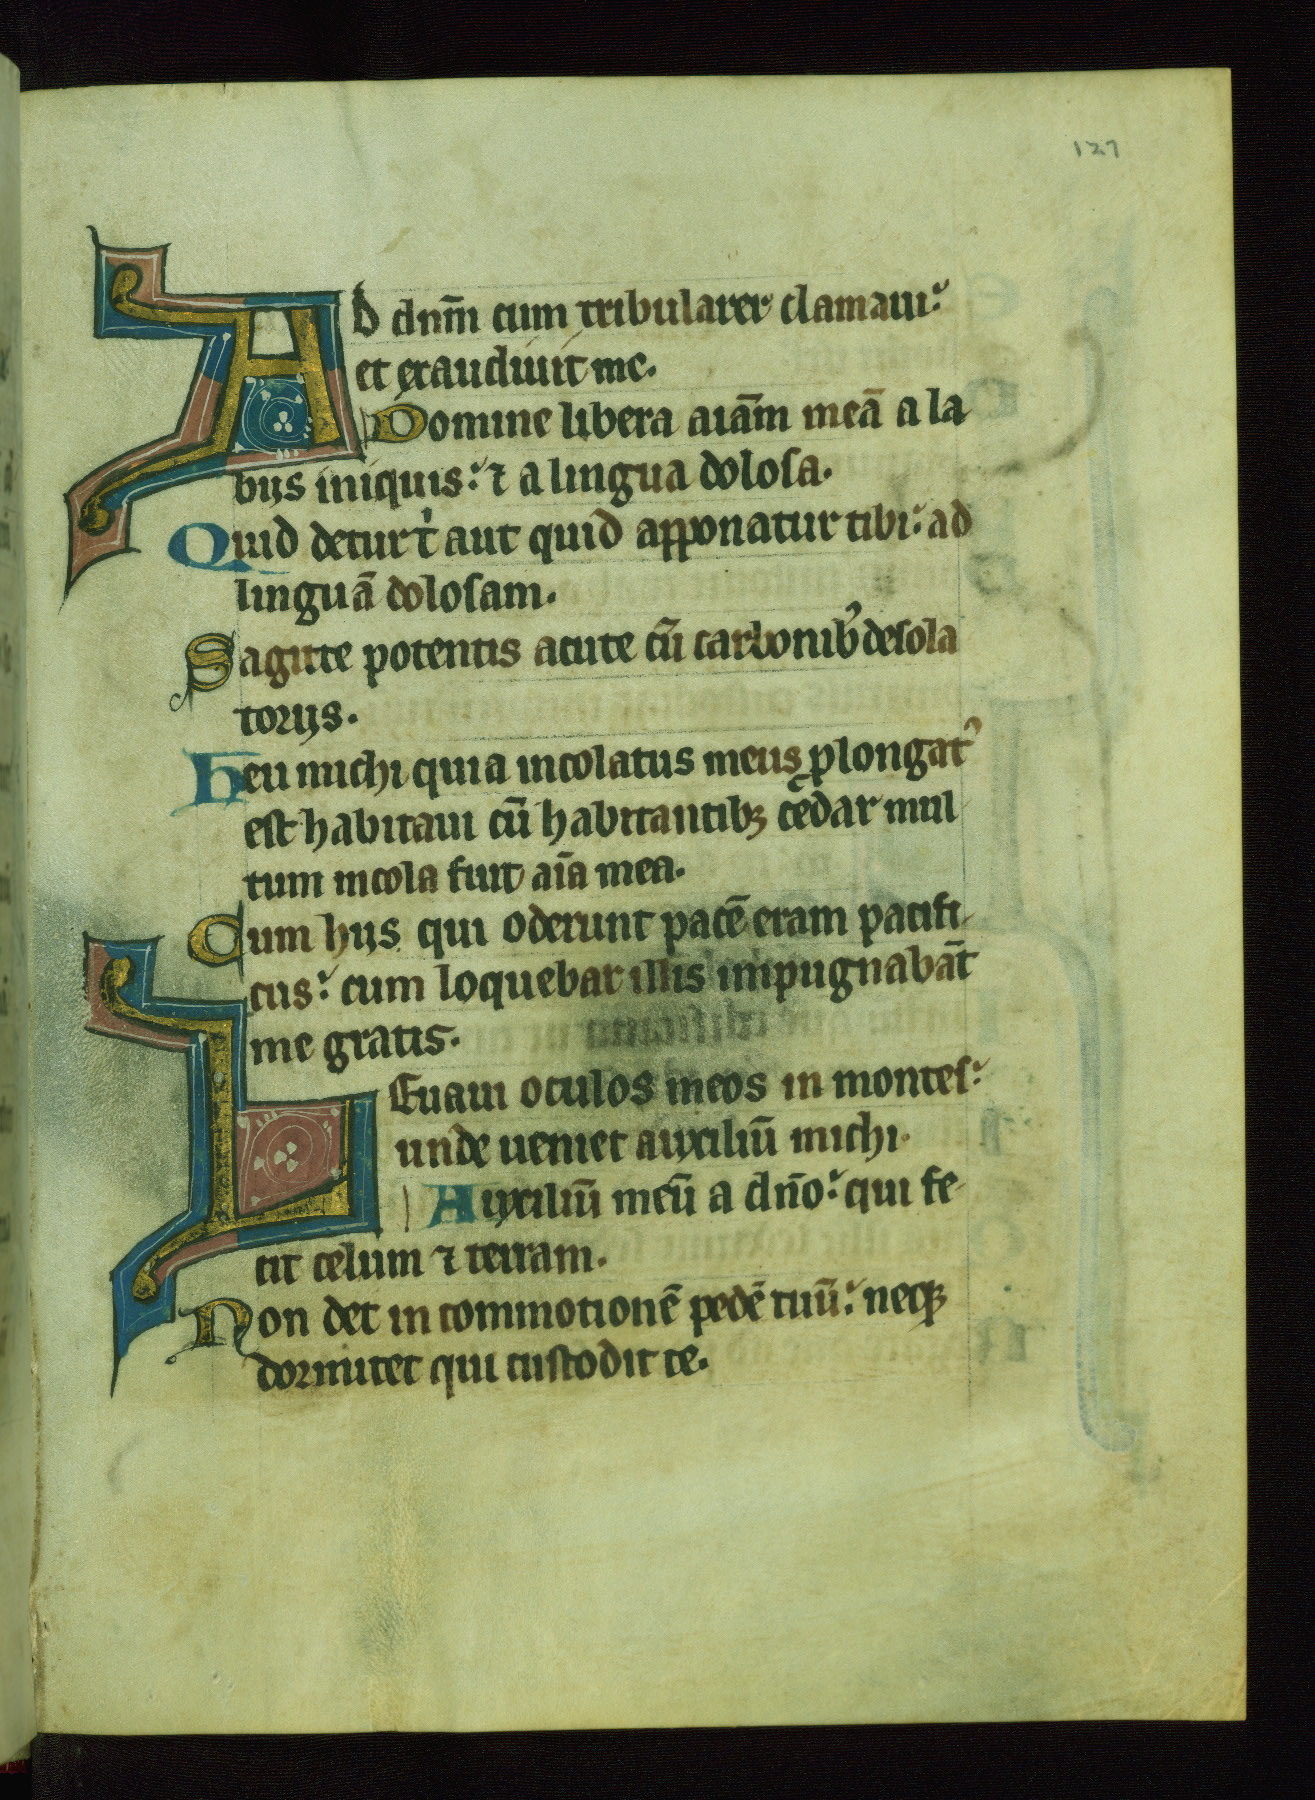 127
AD dnm̄ cum tribularer clamaui:
et exaudiuit me.
Domine libera aiām meā a la
bijs iniquis: ⁊ a lingua dolosa.
Quid detur t' aut quid apponatur tibi: ad
linguā dolosam.
Sagitte potentis acute cū carbonib' desola
torijs.
Heu michi quia incolatus meus ꝓlongat'
est habitaui cū habitantibꝫ cedar mul
tum incola fuit aīa mea.
Cum hijs qui oderunt pacē eram pacifi
cus: cum loquebar illis impugnabāt
me gratis.
LEuaui oculos meos in montes:
unde ueniet auxiliū michi.
Auxiliū meū a dn̄o: qui fe
cit celum ⁊ terram.
Non det in commotionē pedē tuū: neqꝫ
dormitet qui custodit te.